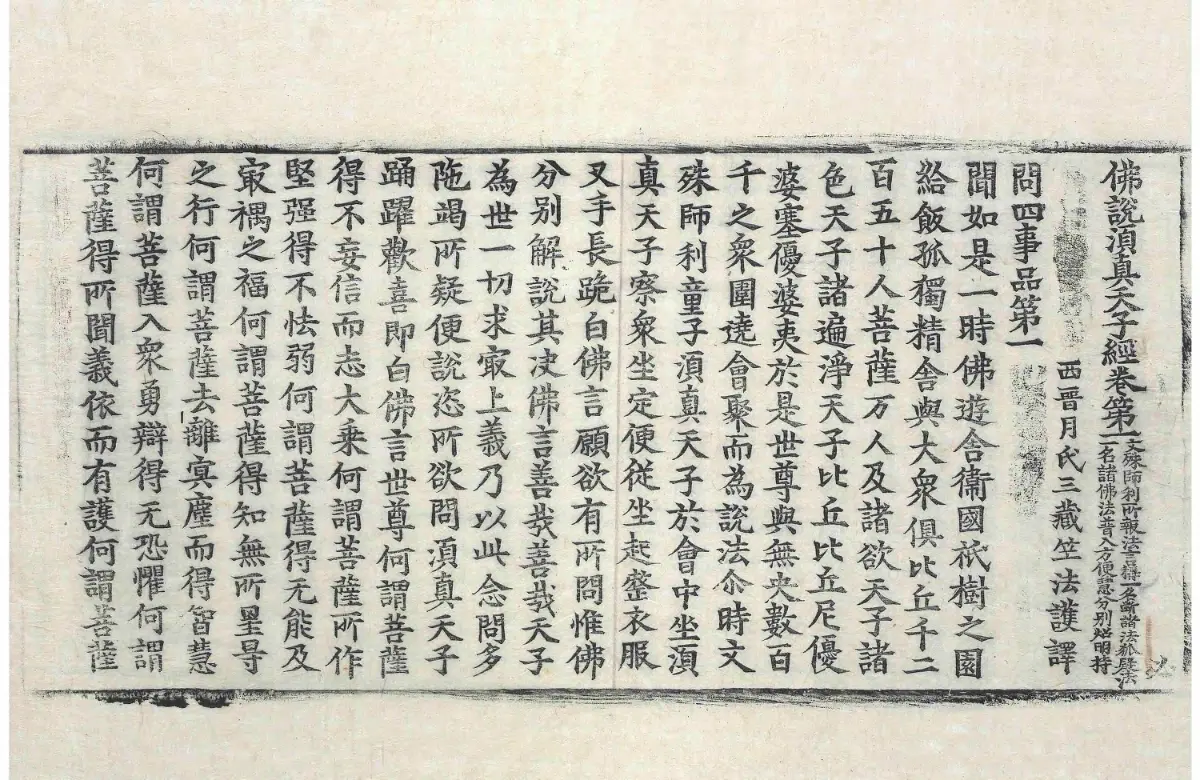 佛說湏真天子經卷第一
文殊師利所報法言 一名斷諸法狐疑法
一名諸佛法普入方便慧分別炤明持
西晉月氏三藏竺法護譯
問四事品第一
聞如是一時佛遊舍衛國祇樹之園
給飯孤獨精舍與大衆俱比丘千二
百五十人菩薩万人及諸欲天子諸
色天子諸遍淨天子比丘比丘尼優
婆塞優婆夷於是世尊與無央數百
千之衆圍遶會聚而為說法尒時文
殊師利童子湏真天子於會中坐湏
真天子察衆坐定便從坐起整衣服
叉手長跪白佛言願欲有所問惟佛
分别解說其决佛言善哉善哉天子
為世一切求㝡上義乃以此念問多
陁竭所疑便說恣所欲問湏真天子
踊躍歡喜即白佛言世尊何謂菩薩
得不妄信而志大乗何謂菩薩所作
堅强得不怯弱何謂菩薩得无能及
㝡禑之福何謂菩薩得知無所罣㝵
之行何謂菩薩去離㝠塵而得智慧
何謂菩薩入衆勇辯得无恐懼何謂
菩薩得所聞義依而有護何謂菩薩